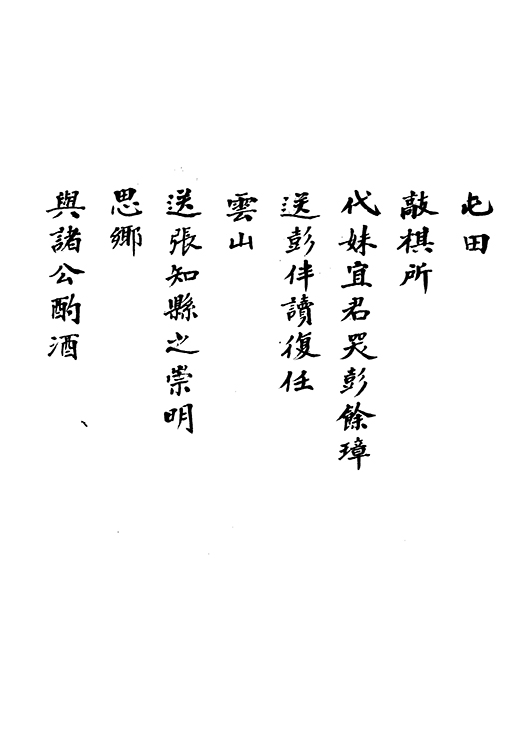 屯田
敲棋所
代妹宜君哭彭餘璋
送彭伴讀復任
雲山
送張知縣之崇明
思鄉
與諸公酌酒